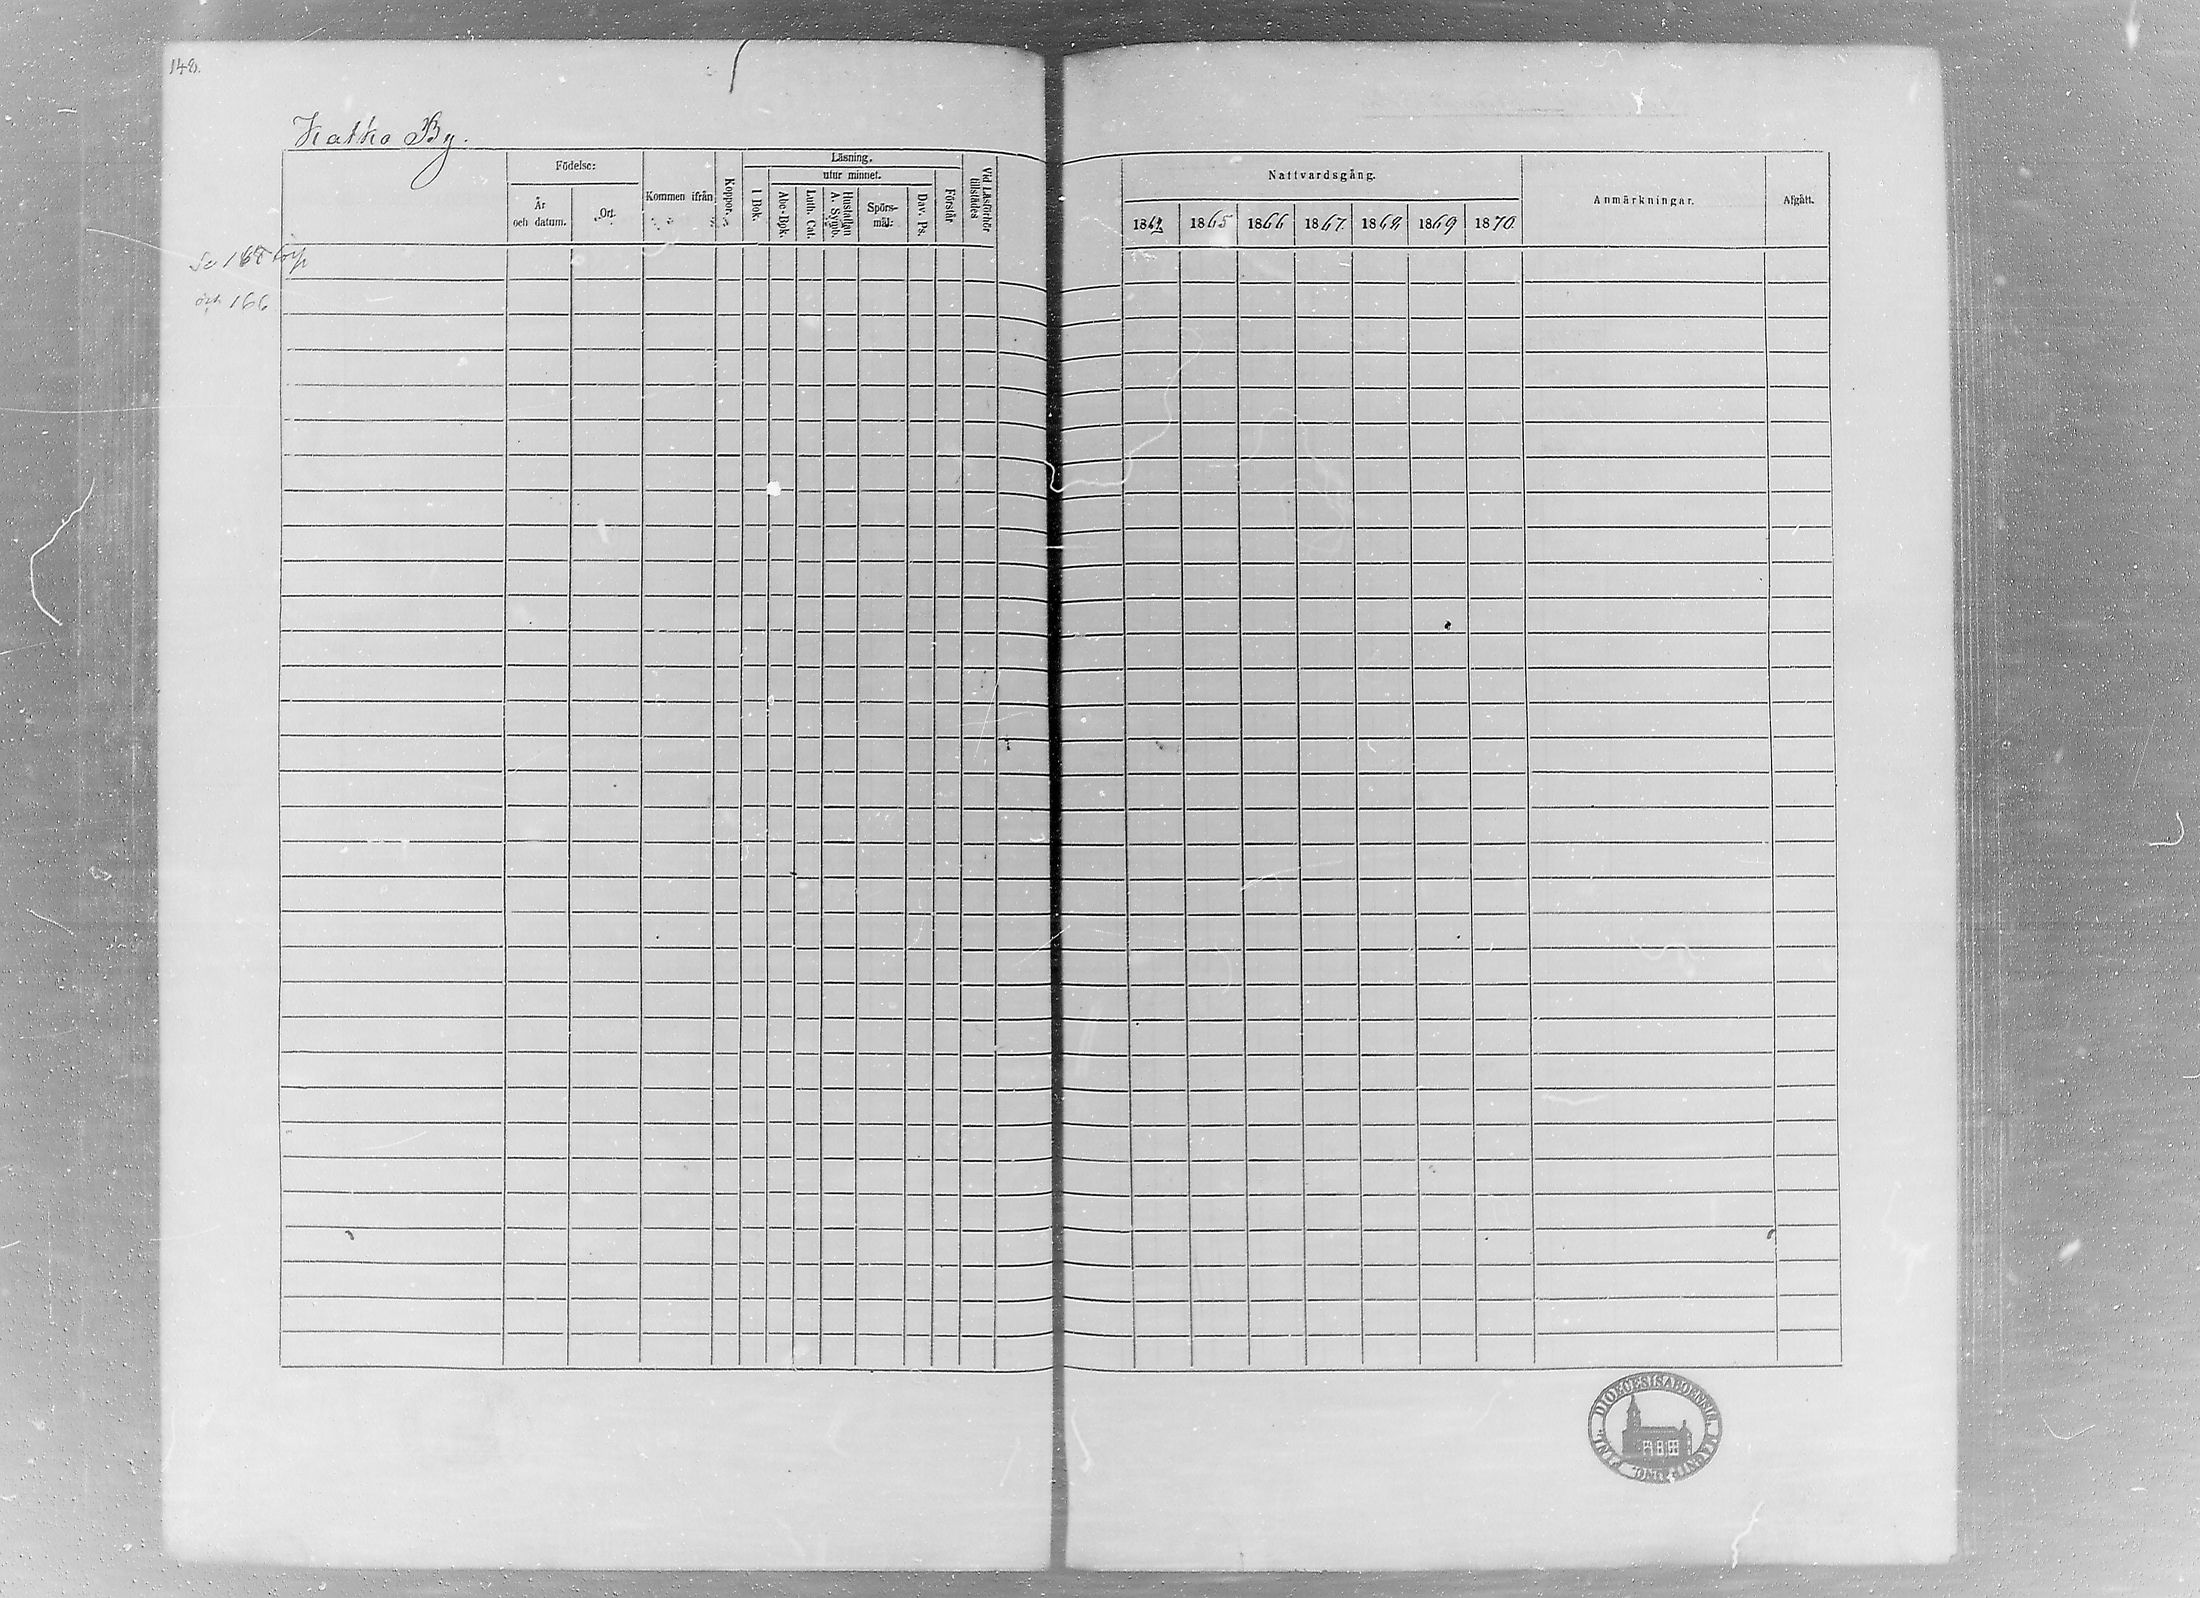 148.
Katko By.
Födelse:
År
och datum.
Ort.
Kommen ifrån
Koppor.
Läsning.
I Bok.
utur minnet.
Abc-Bok.
Luth. Cat.
Hustaflan
A. Symb.
Spörs-
mål:
Dav. Ps.
Förstår
Vid Läsförhör
tillstädes
Se 165
och 166
Nattvardsgång.
1864 1865 1866 1867. 1868 1869 1870.
Anmärkningar.
Afgått.
DIOECESIS ABOENSIS